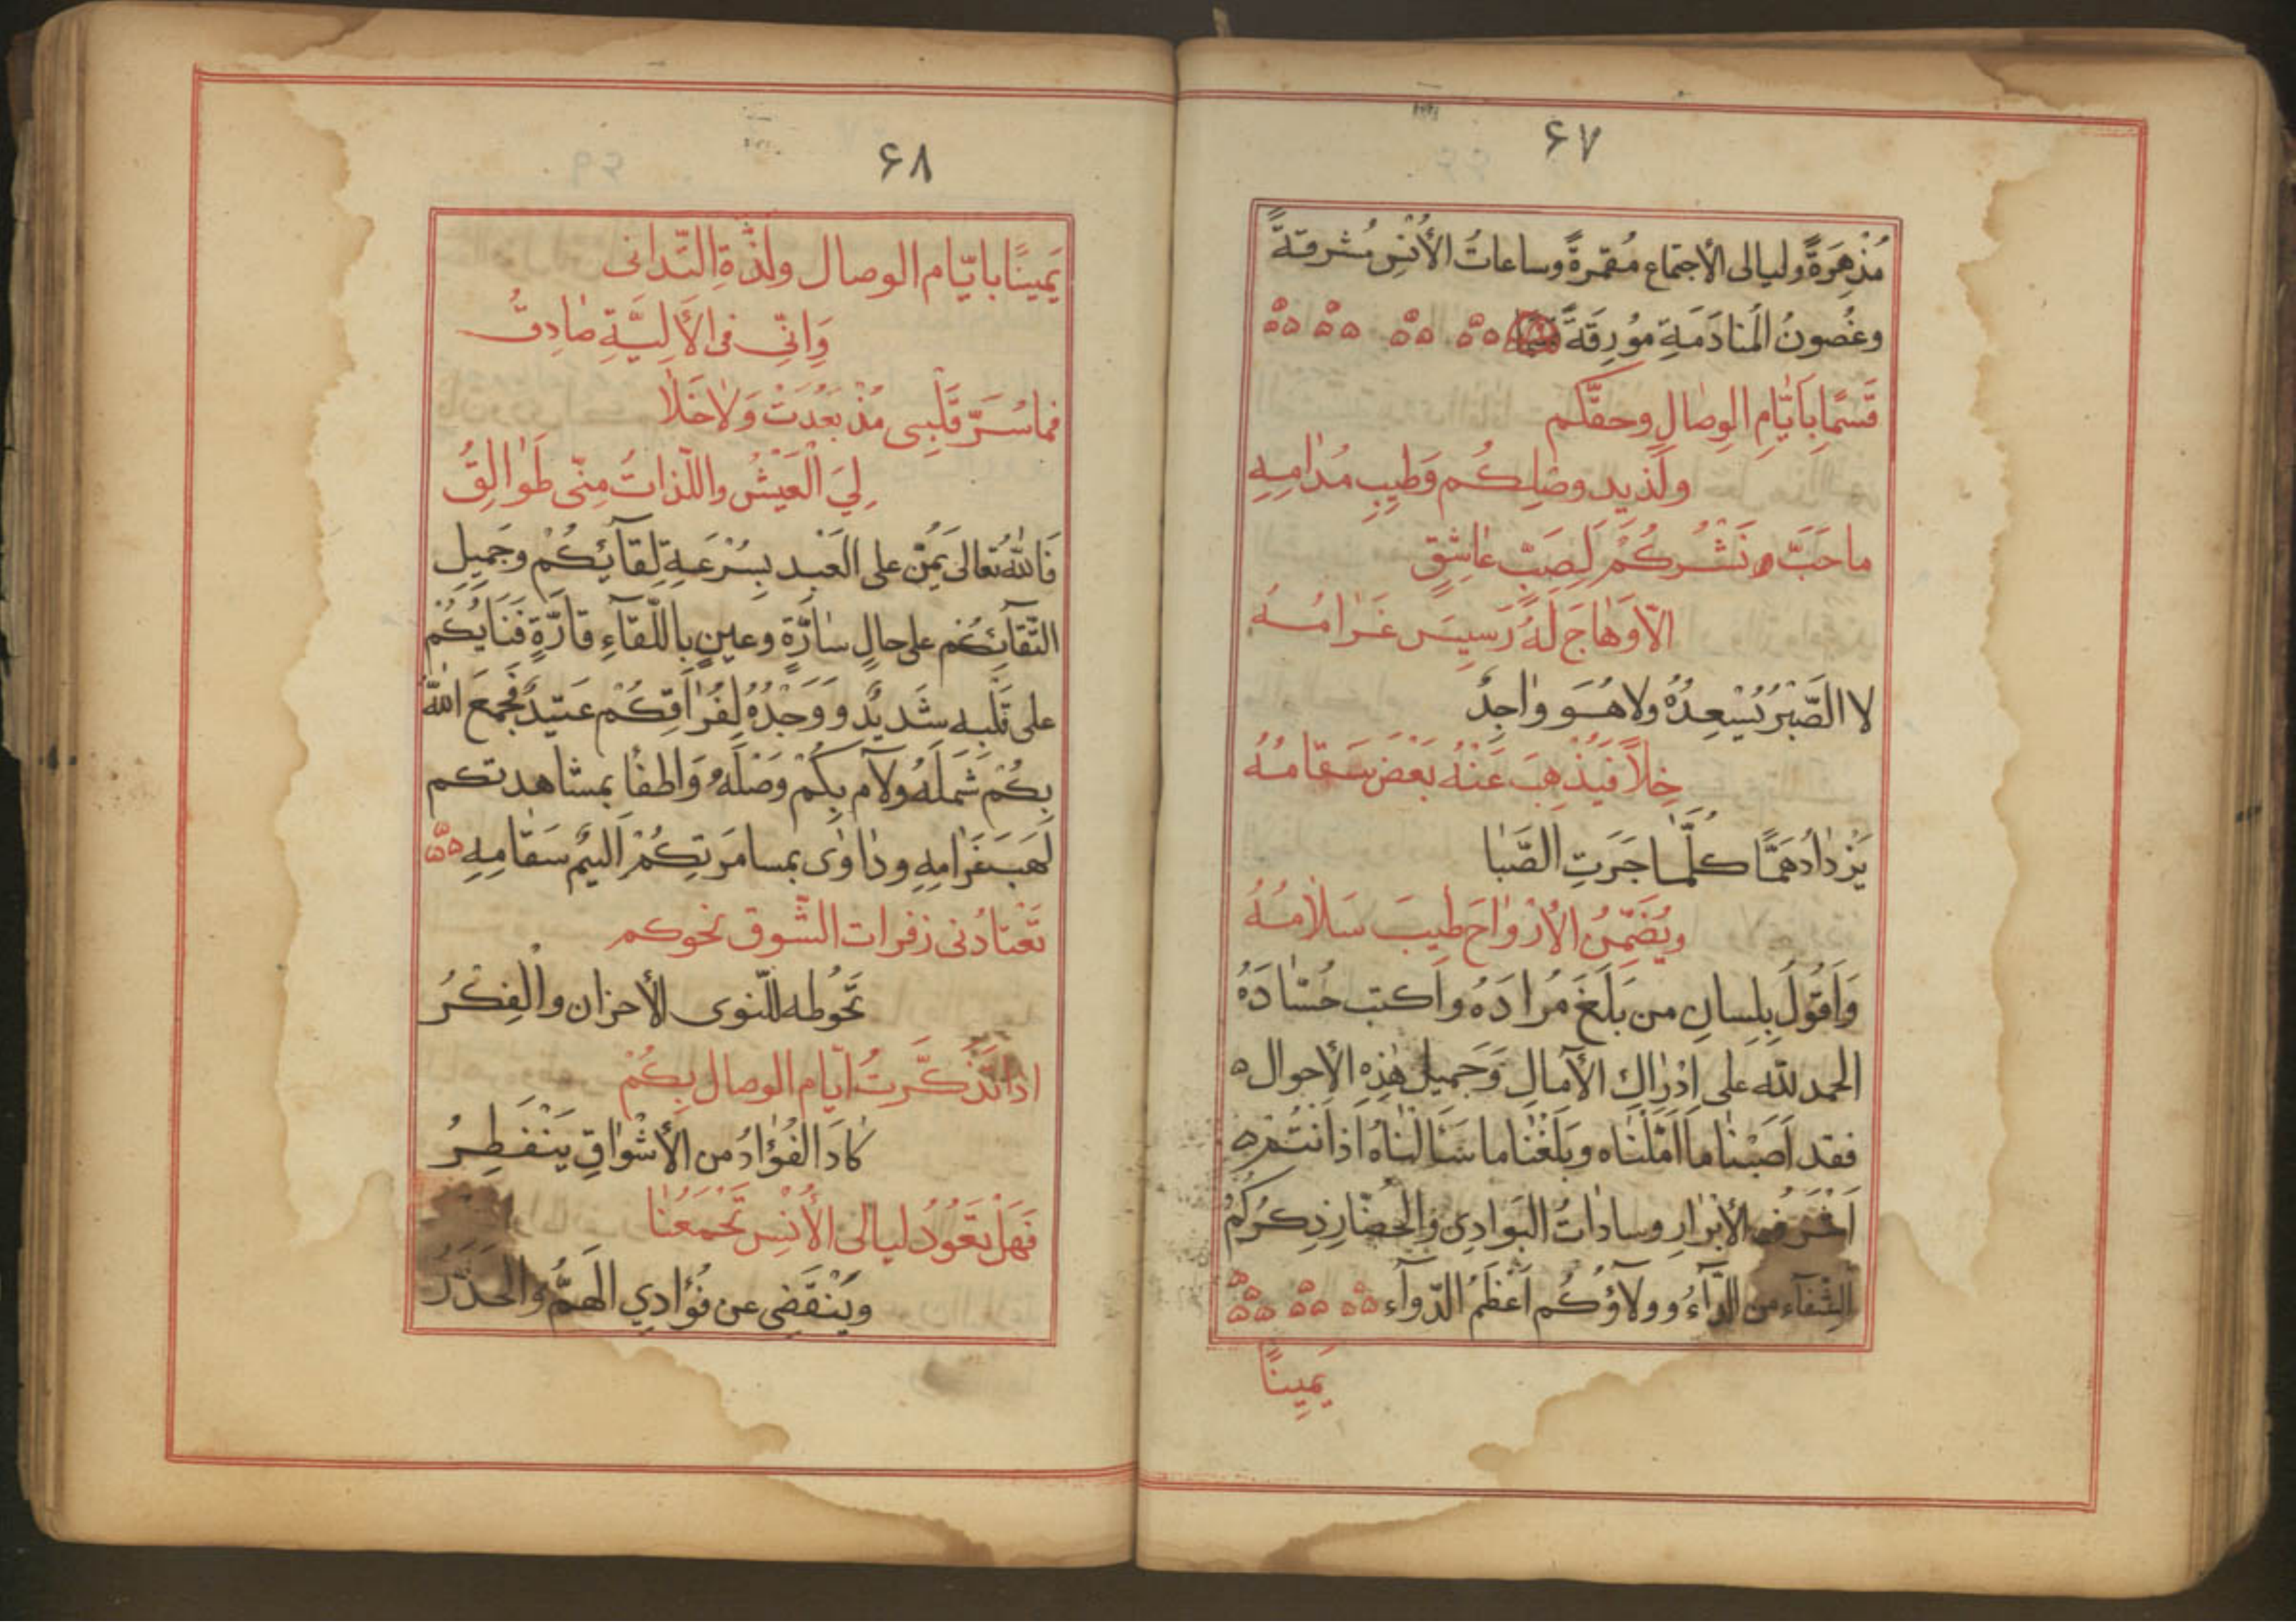 ۶۷
مُذْهِرَةً وليالى الأجتماع مُقمرةً وساعاتُ الأُنْسِ مُشرقةً
وغُصونُ المُنادَمَةِ مُورِقَةً
قَسَمًا بِاَيّٰامِ الوِصٰالِ وحقّكم
ولَذيدِ وصْلِكُم وَطيبِ مُدٰامِهِ
ما حَبَّ نَشْرُكُمْ لِصَبّ عٰاشِقٍ
الّا وَهٰاجَ لَهُ رَسِيسَ غَرٰامُهُ
لا الصَّبْرُ يُسْعِدُهُ ولا هُو وٰاجِدٌ
خِلاًّ فَيَذْهِبَ عَنْهُ بَعْضَ سَقٰامُهُ
يَزْدٰادُ هَمًّا كلّمٰا جَرَتِ الصَّبٰا
ويُضَمِّنُ الأرْوٰاحَ طيبَ سَلاٰمُهُ
وَاَقُولُ بِلِسانِ من بَلَغَ مُرادَهُ واَكبت حُسّٰادَهُ
الحمد لله على اِدْرٰاكِ الآمالِ وَجَميلِ هٰذِهِ الأحوال ه
فقد اَصَبْنٰا ما اَمَّلْنٰاه وبَلَغْنٰا ما سَئَالْنٰاهُ اذ اَنتُم ه
الأبْرٰارِ وسادٰاتُ البَوادِى وَالحُضّارِ ذِكرُكُمْ
الشِّفآء من الدّآءُ وولاؤُكُم اَعْظَمُ الدّوآء
يَمِينًا
۶۸
يَمينًا بايّام الوصال ولذّةِ التّدانى
وَاِنّى فى الأَلِيَّةِ صٰادِقُ
فما سُرَّ قَلْبِى مُذْ بَعُدَتْ وَلاٰ حَلاٰ
لِيَ الْعَيْشُ واللّذاتُ مِنّى طَوٰالِقُ
فَاللهُ تعالى يَمُنّ على العَبْدِ بِسُرْعَةِ لِقآئِكُمْ وجَميلِ
التّقآئِكُم على حالٍ سٰارَّةٍ وعينٍ باللّقآءِ قارَّةٍ فَنَايُكُمْ
على قَلْبِهِ شَديدٌ وَوَجْدُهُ لِفُرٰاقِكُمْ عَتيدٌ فَجَمَعَ اللهُ
بِكُمْ شَمْلَهُ ولآم بِكُمْ وَصْلَهُ وَاَطفأ بمشاهدتكم
لَهَبَ غَرٰامِهِ ودٰاوٰى بمسامَرَتِكُمْ اَليمُ سَقٰامِهِ
تَعْتادُنى زفرات الشّوق نحوكم
تَحُوطه للنّوى الأحزان والْفِكَرُ
اذا تَذَكَّرتُ ايّام الوصال بِكُمْ
كادَ الفُؤٰادُ من الأشْوٰاقِ يَنْفَطِرُ
فَهَلْ تَعُوُدُ ليالى الأُنْسِ تَجْمَعُنٰا
ويَنْقَضِى عن فُؤادِي الَهمُّ والحَذَرُ